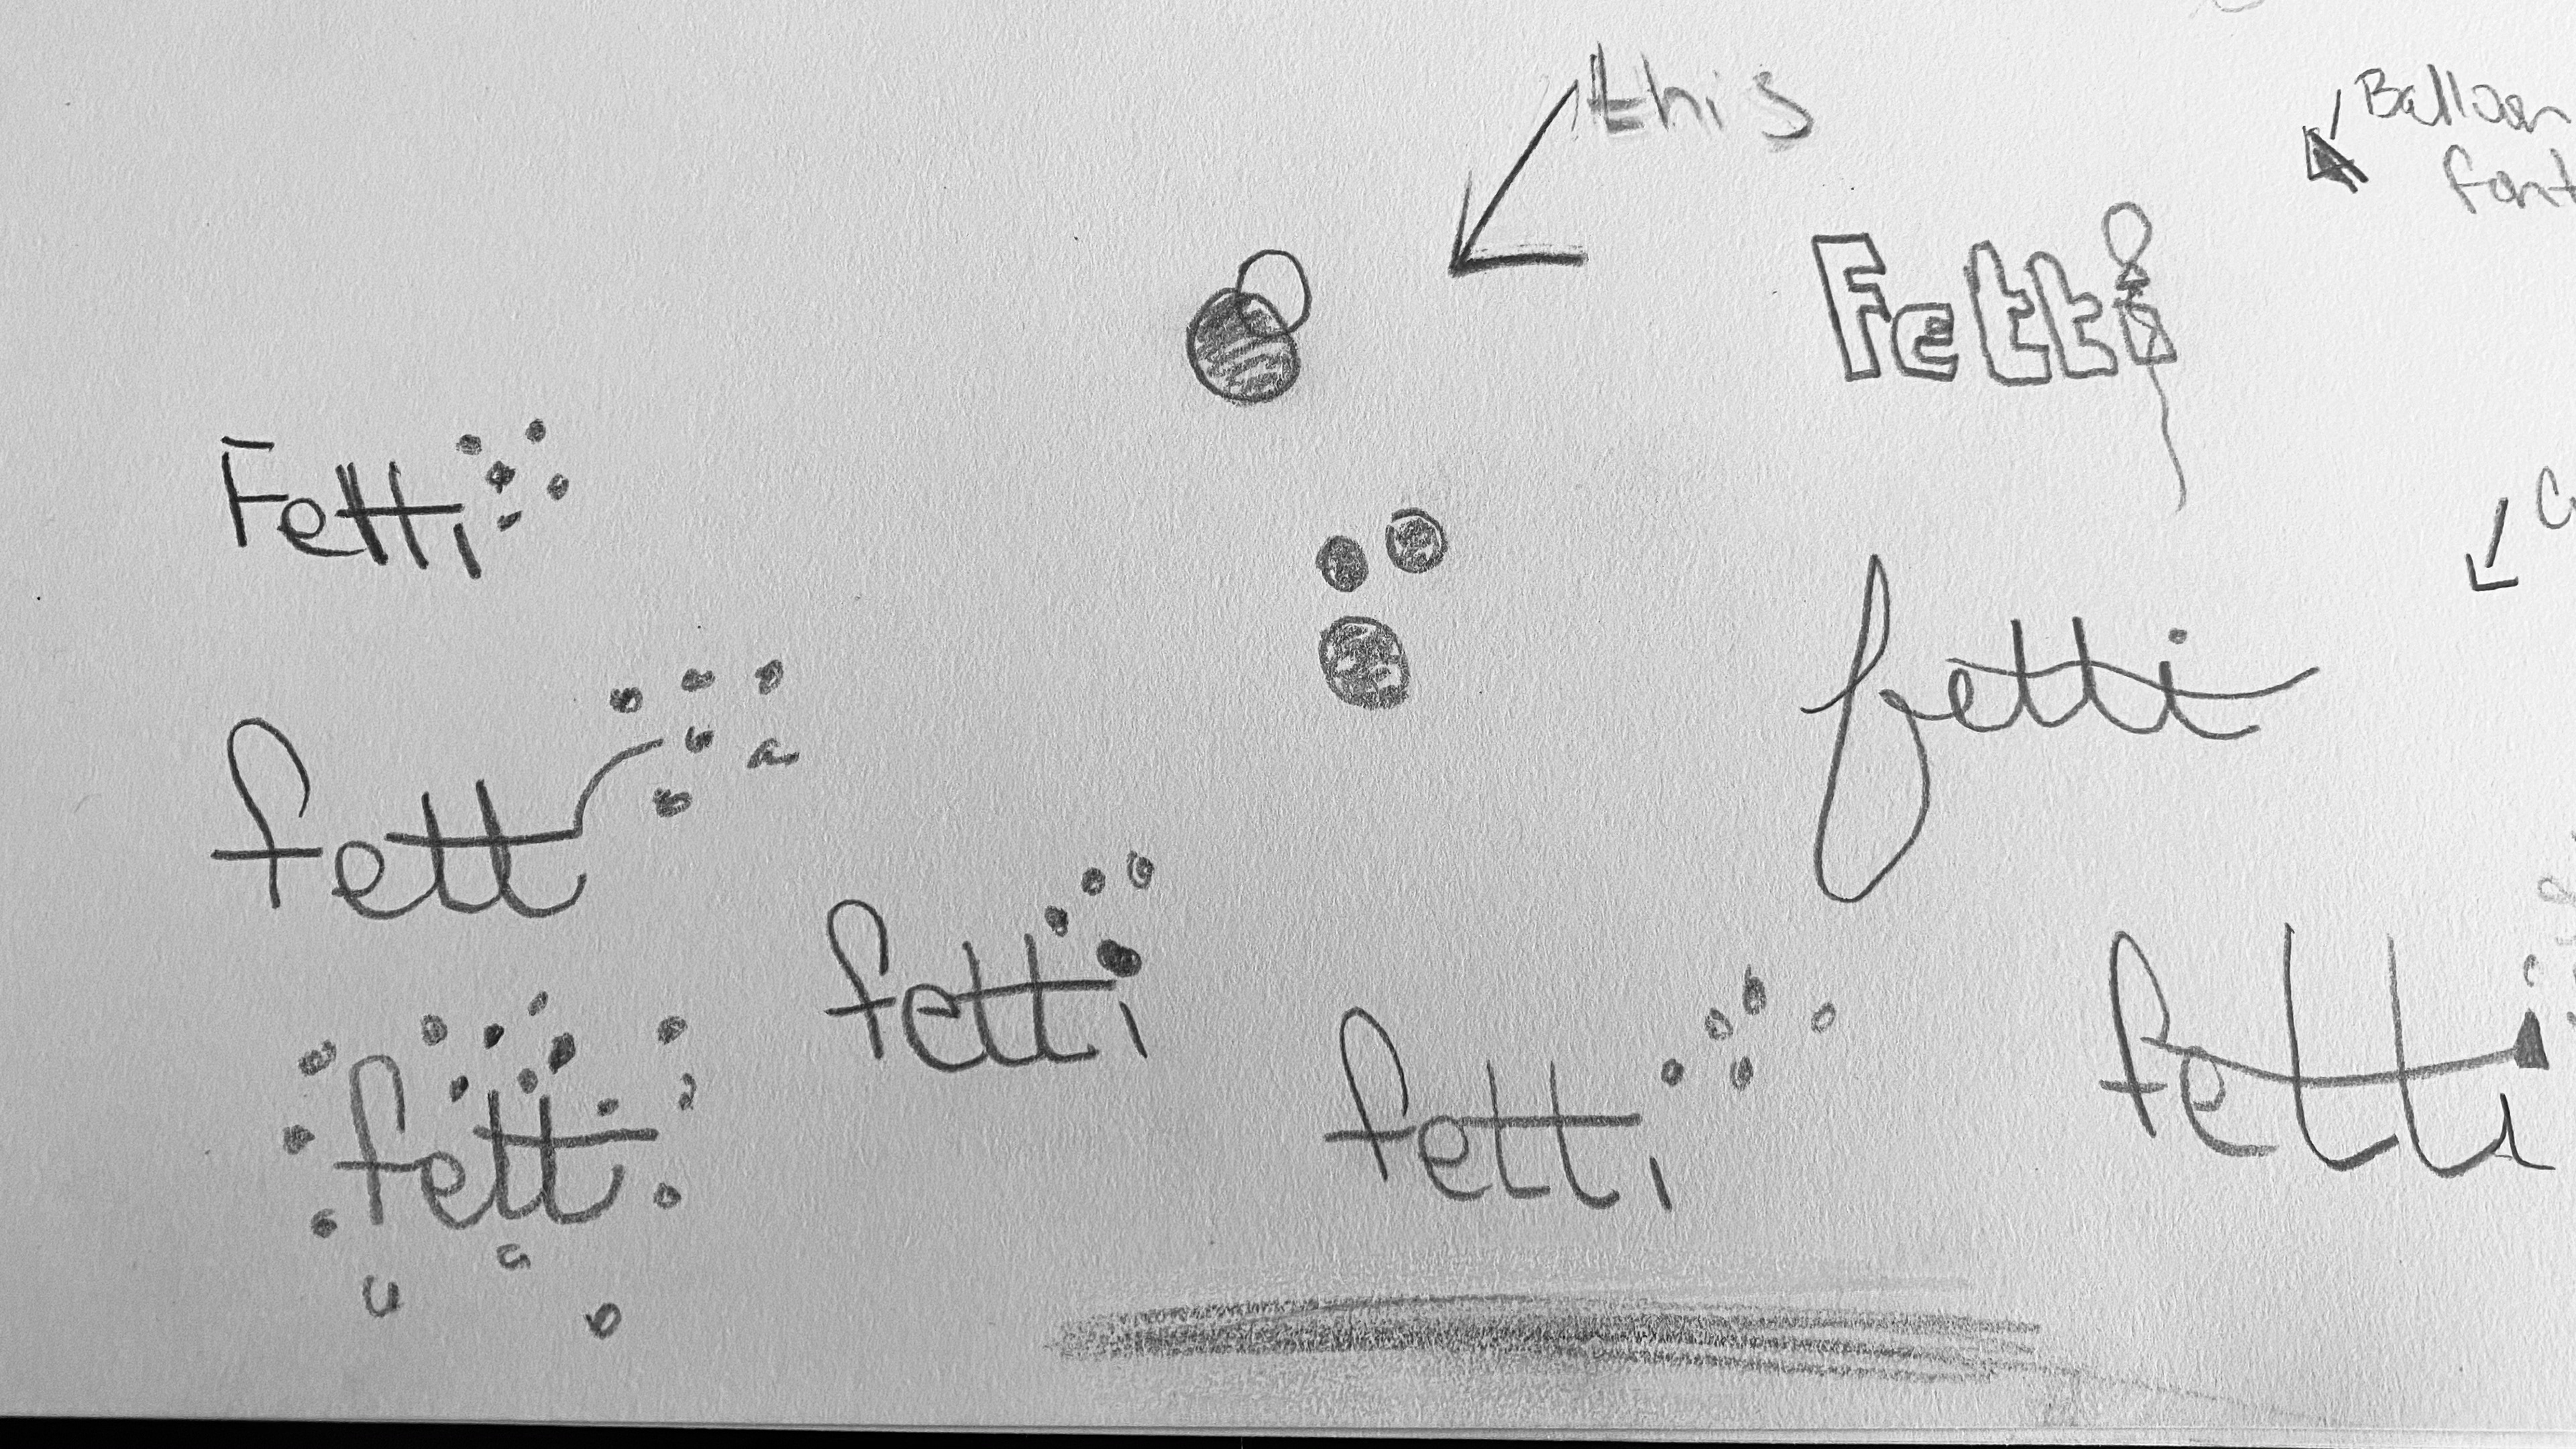 this
Balloon
font
Fetti
Fetti
fetti
fett
fetti
fetti
fetti
fett